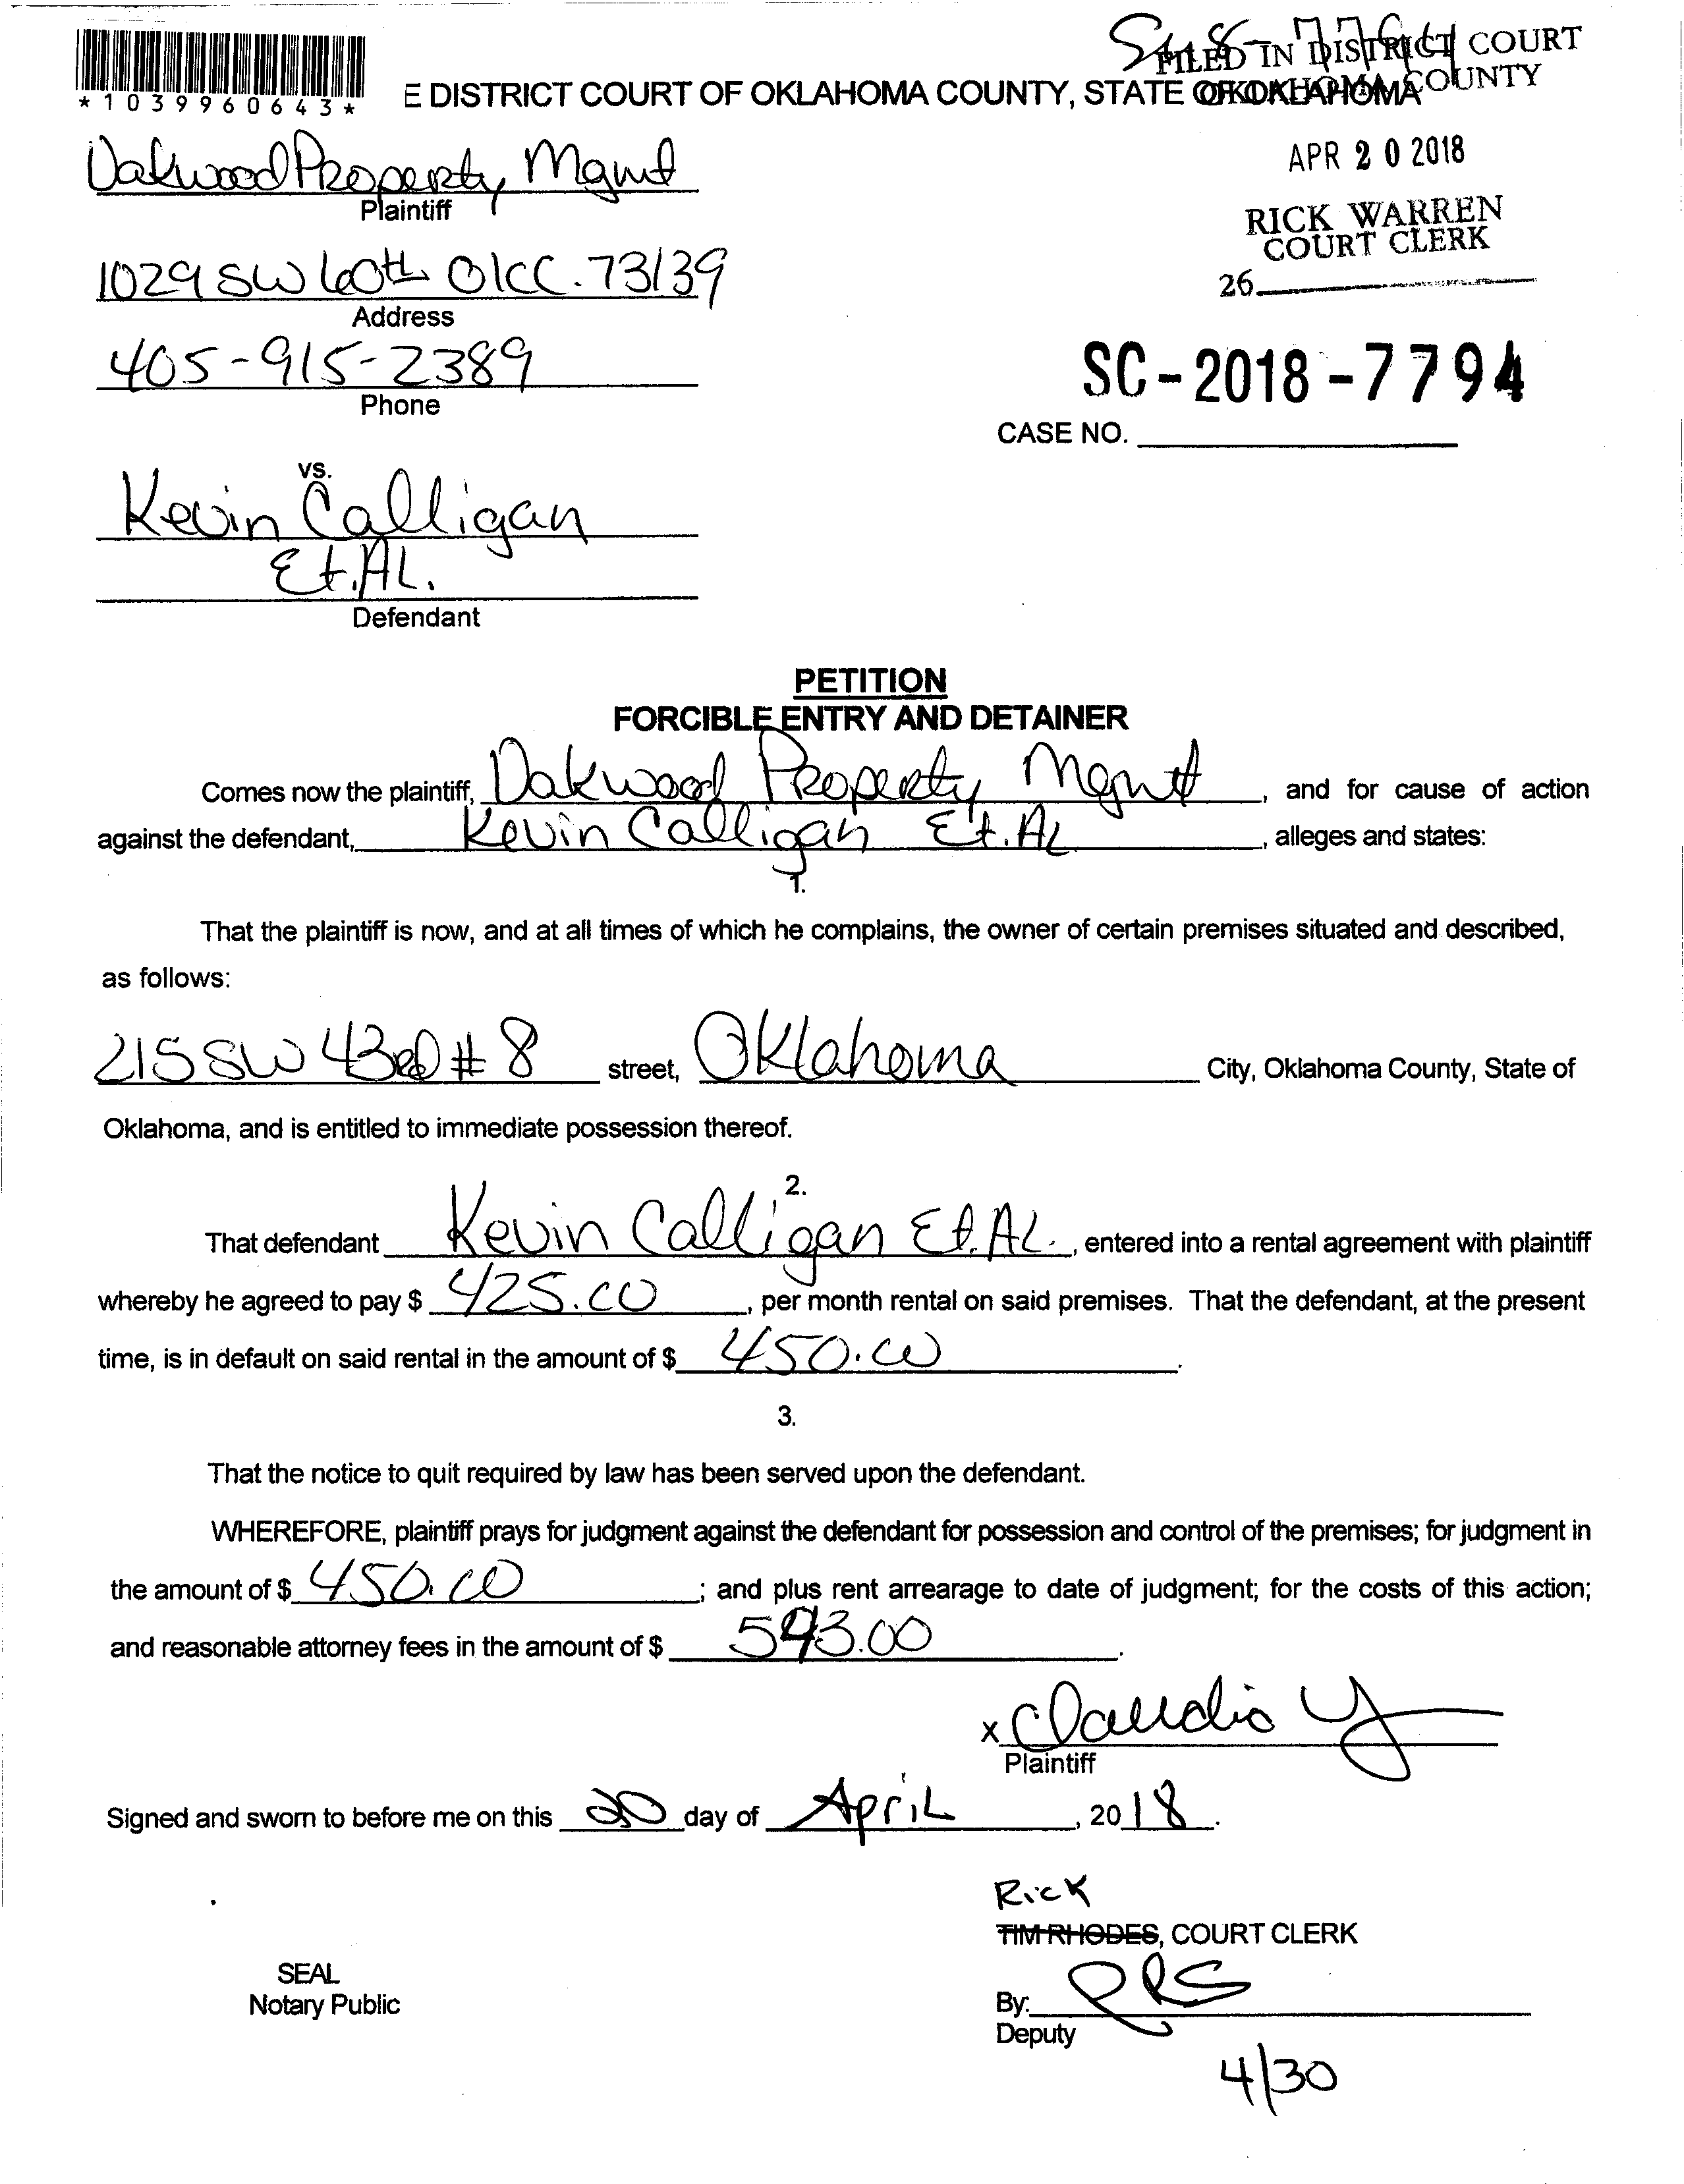 S18-7764
FILED IN DISTRICT COURT
OKLAHOMA COUNTY
*1039960643*
E DISTRICT COURT OF OKLAHOMA COUNTY, STATE OF OKLAHOMA
APR 20 2018
RICK WARREN
COURT CLERK
26
Oakwood Property Mgmt
Plaintiff
1029 SW 60th OKC. 73139
Address
405-915-2389
Phone
SC-2018-7794
CASE NO.
vs.
Kevin Calligan
Et.AL.
Defendant
PETITION
FORCIBLE ENTRY AND DETAINER
Comes now the plaintiff, Oakwood Property Mgmt, and for cause of action
against the defendant, Kevin Calligan Et.AL, alleges and states:
1.
That the plaintiff is now, and at all times of which he complains, the owner of certain premises situated and described,
as follows:
215 SW 43rd #8 street, Oklahoma City, Oklahoma County, State of
Oklahoma, and is entitled to immediate possession thereof.
2.
That defendant Kevin Calligan Et.AL., entered into a rental agreement with plaintiff
whereby he agreed to pay $ 425.00, per month rental on said premises. That the defendant, at the present
time, is in default on said rental in the amount of $ 450.00.
3.
That the notice to quit required by law has been served upon the defendant.
WHEREFORE, plaintiff prays for judgment against the defendant for possession and control of the premises; for judgment in
the amount of $ 450.00; and plus rent arrearage to date of judgment; for the costs of this action;
and reasonable attorney fees in the amount of $ 593.00.
x Claudia Y
Plaintiff
Signed and sworn to before me on this 20 day of April, 2018.
Rick
TIM RHODES, COURT CLERK
SEAL
Notary Public
By:
Deputy
4/30